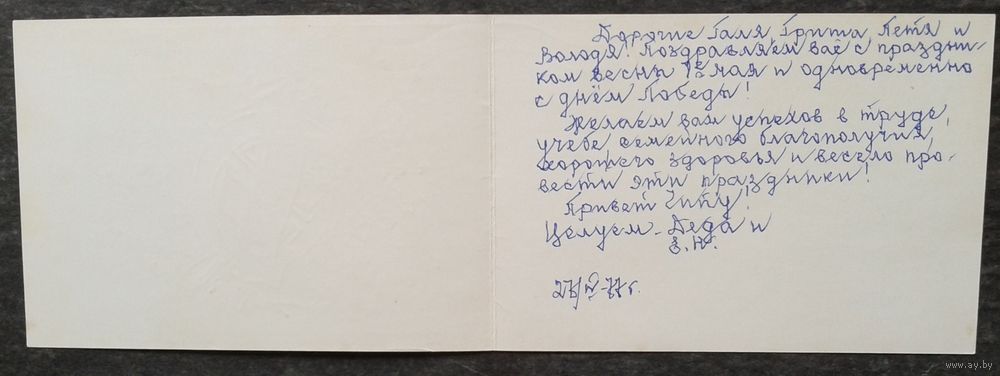 Дорогие Галя, Гриша, Петя и
Володя! Поздравляем вас с праздни-
ком весны 1ое мая и одновременно
с днём Победы!
Желаем вам успехов в труде,
учебе семейного благополучия,
хорошего здоровья и весело про-
вести эти праздники!
Привет Чипу!
Целуем - Деда и
27/IV-77 г.
www.ay.by